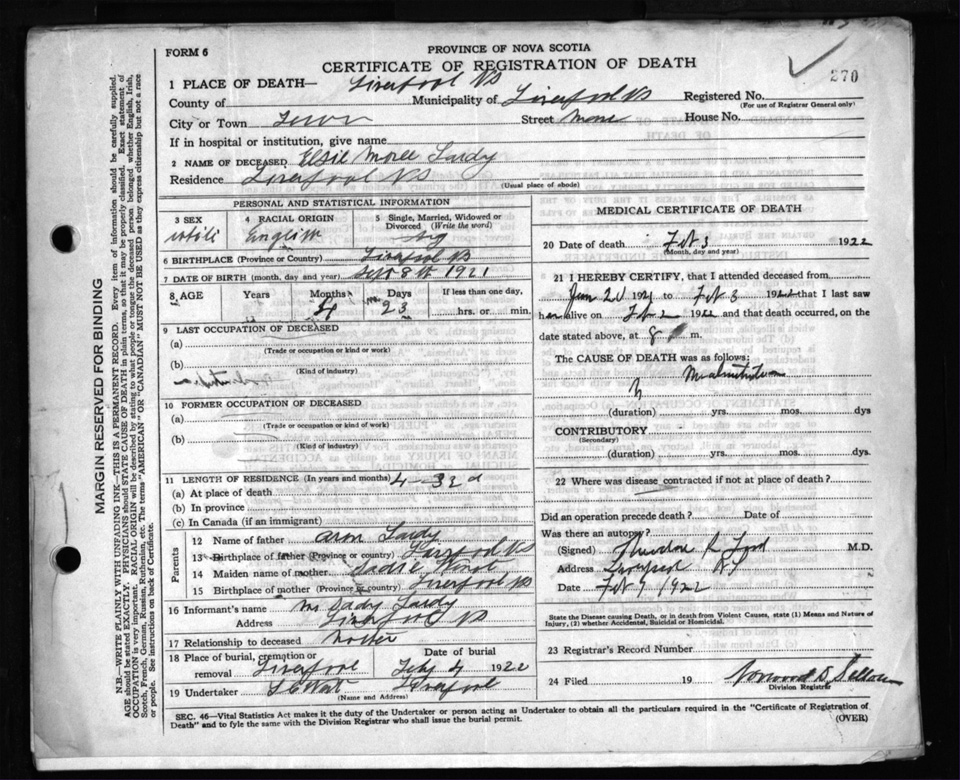 FORM 6
PROVINCE OF NOVA SCOTIA
CERTIFICATE OF REGISTRATION OF DEATH
270
1 PLACE OF DEATH— Liverpool NS
County of Municipality of Liverpool NS Registered No.
(For use of Registrar General only)
City or Town Town Street House No.
If in hospital or institution, give name
2 NAME OF DECEASED Elsie
Residence Liverpool NS
(Usual place of abode)
PERSONAL AND STATISTICAL INFORMATION
3 SEX 4 RACIAL ORIGIN 5 Single, Married, Widowed or Divorced (Write the word)
English
6 BIRTHPLACE (Province or Country) Liverpool NS
7 DATE OF BIRTH (month, day and year) Sept 8th 1921
8 AGE Years Months Days If less than one day,
4 23 hrs. or min.
9 LAST OCCUPATION OF DECEASED
(a)
(Trade or occupation or kind or work)
(b)
(Kind of industry)
10 FORMER OCCUPATION OF DECEASED
(a)
(Trade or occupation or kind of work)
(b)
(Kind of industry)
11 LENGTH OF RESIDENCE (In years and months)
(a) At place of death
(b) In province
(c) In Canada (if an immigrant)
Parents
12 Name of father
13 Birthplace of father (Province or country) Liverpool NS
14 Maiden name of mother
15 Birthplace of mother (Province or country) Liverpool NS
16 Informant's name
Address Liverpool NS
17 Relationship to deceased Mother
18 Place of burial, cremation or removal Liverpool Date of burial Feby 4 1922
19 Undertaker Liverpool
(Name and Address)
MEDICAL CERTIFICATE OF DEATH
20 Date of death Feb 3 1922
(Month, day and year)
21 I HEREBY CERTIFY, that I attended deceased from
to Feb 3 1922 that I last saw
her alive on Feb 2 1922 and that death occurred, on the
date stated above, at 8 m.
The CAUSE OF DEATH was as follows:
(duration) yrs. mos. dys
CONTRIBUTORY
(Secondary)
(duration) yrs. mos. dys.
22 Where was disease contracted if not at place of death?
Did an operation precede death? Date of
Was there an autopsy?
(Signed) M.D.
Address Liverpool
Date Feb 9 1922
State the Disease causing Death, or in death from Violent Causes, state (1) Means and Nature of Injury, (2) whether Accidental, Suicidal or Homicidal.
23 Registrar's Record Number
24 Filed 19
Division Registrar
SEC. 46—Vital Statistics Act makes it the duty of the Undertaker or person acting as Undertaker to obtain all the particulars required in the "Certificate of Registration of
Death" and to fyle the same with the Division Registrar who shall issue the burial permit.
(OVER)
MARGIN RESERVED FOR BINDING
N.B.—WRITE PLAINLY WITH UNFADING INK—THIS IS A PERMANENT RECORD. Every item of information should be carefully supplied.
AGE should be stated EXACTLY. PHYSICIANS should STATE CAUSE OF DEATH in plain terms, so that it may be properly classified. Exact statement of
OCCUPATION is very important. RACIAL ORIGIN will be described by stating to what people or tongue the deceased person belonged whether English, Irish,
Scotch, French, German, Russian, Ruthenian, etc. The terms "AMERICAN" OR "CANADIAN" MUST NOT BE USED as they express citizenship but not a race
or people. See instructions on back of Certificate.